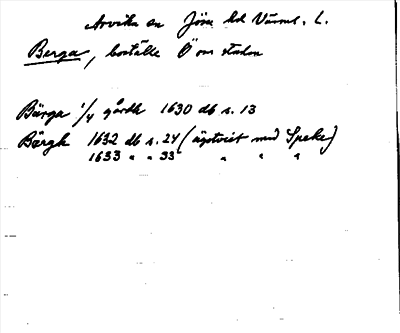 Arvika sn Jösse hd Värml. L.
Berga, boställe Ö om staden
Bärga 1/4 gårdh 1630 db s. 13
Bärgh 1632 db s. 24 (ägotvist med Speke)
1633 " " 33 " " "